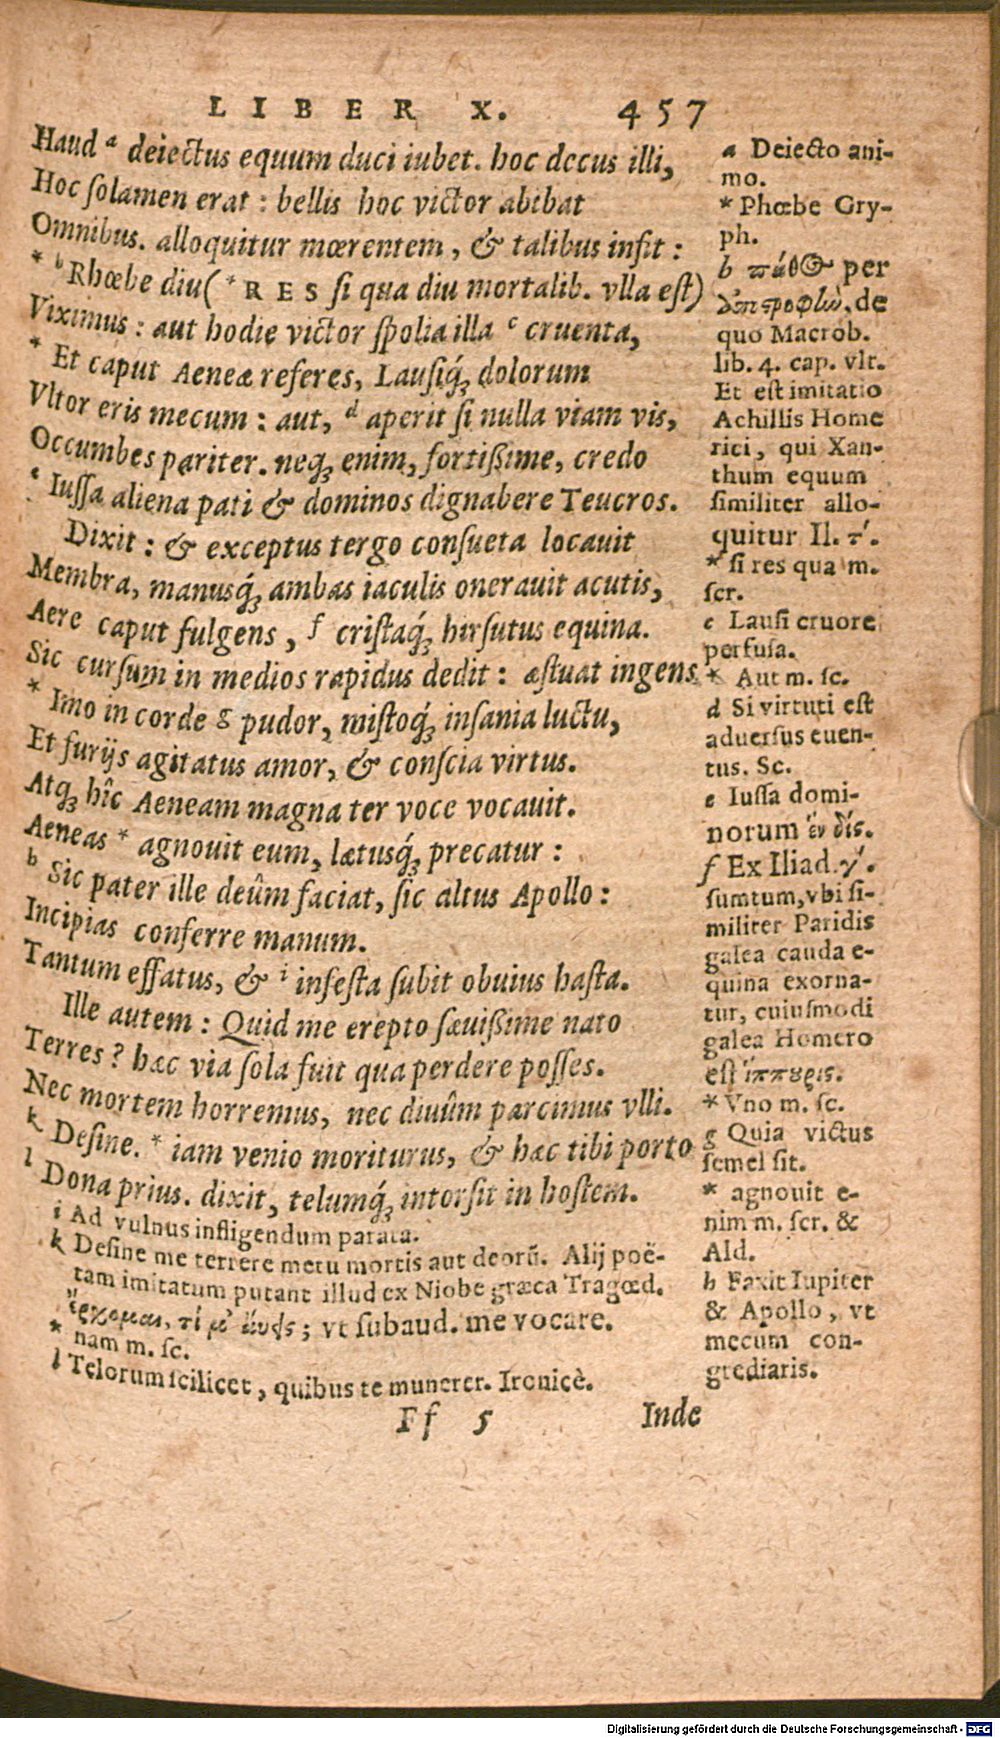 LIBER X. 457
Haud a deiectus equum duci iubet. hoc decus illi,
Hoc solamen erat : bellis hoc victor abibat
Omnibus. alloquitur mœrentem, & talibus infit :
* b Rhœbe diu( * RES si qua diu mortalib. vlla est)
Viximus : aut hodie victor spolia illa c cruenta,
* Et caput Aeneæ referes, Lausiq́; dolorum
Vltor eris mecum : aut, d aperit si nulla viam vis,
Occumbes pariter. neq; enim, fortißime, credo
e Iussa aliena pati & dominos dignabere Teucros.
Dixit : & exceptus tergo consueta locauit
Membra, manusq́; ambas iaculis onerauit acutis,
Aere caput fulgens, f cristaq́; hirsutus equina.
Sic cursum in medios rapidus dedit : æstuat ingens
* Imo in corde g pudor, mistoq́; insania luctu,
Et furijs agitatus amor, & conscia virtus.
Atq; hîc Aeneam magna ter voce vocauit.
Aeneas * agnouit eum, lætusq́; precatur :
h Sic pater ille deûm faciat, sic altus Apollo :
Incipias conferre manum.
Tantum effatus, & i infesta subit obuius hasta.
Ille autem : Quid me erepto sæuißime nato
Terres? hæc via sola fuit qua perdere posses.
Nec mortem horremus, nec diuûm parcimus vlli.
k Desine. * iam venio moriturus, & hæc tibi porto
l Dona prius. dixit, telumq́; intorsit in hostem.
i Ad vulnus infligendum parata.
k Desine me terrere metu mortis aut deorũ. Alij poë-
tam imitatum putant illud ex Niobe græca Tragœd.
ἔρχομαι, τί μ' ἄυεις; vt subaud. me vocare.
* nam m. sc.
l Telorum scilicet, quibus te munerer. Ironicè.
Ff 5 Inde
a Deiecto ani-
mo.
* Phœbe Gry-
ph.
b πάθος per
ὑπεροφλὼ, de
quo Macrob.
lib. 4. cap. vlt.
Et est imitatio
Achillis Home
rici, qui Xan-
thum equum
similiter allo-
quitur Il. τ'.
* si res qua m.
scr.
c Lausi cruore
perfusa.
* Aut m. sc.
d Si virtuti est
aduersus euen-
tus. Sc.
e Iussa domi-
norum ἓν δὶς.
f Ex Iliad. γ'.
sumtum, vbi si-
militer Paridis
galea cauda e-
quina exorna-
tur, cuiusmodi
galea Homero
est ἵππουρις.
* Vno m. sc.
g Quia victus
semel sit.
* agnouit e-
nim m. scr. &
Ald.
h Faxit Iupiter
& Apollo, vt
mecum con-
grediaris.
Digitalisierung gefördert durch die Deutsche Forschungsgemeinschaft - DFG